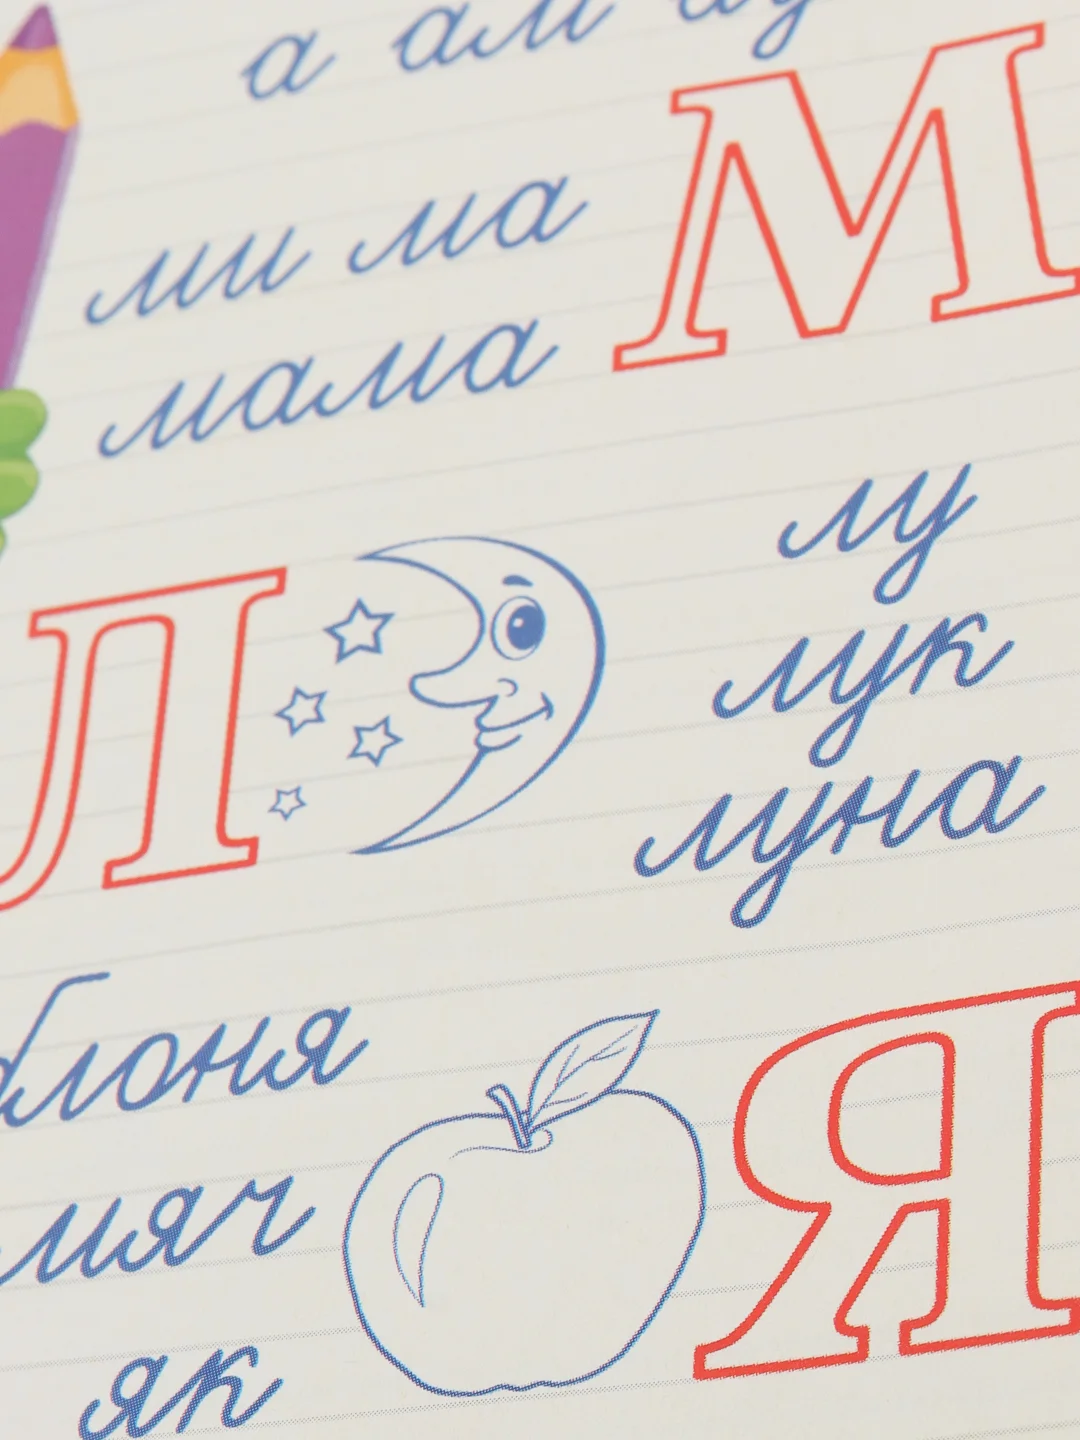 а ам
ми ма
М
мама
лу
Л
лук
луна
блоня
Я
мяч
як